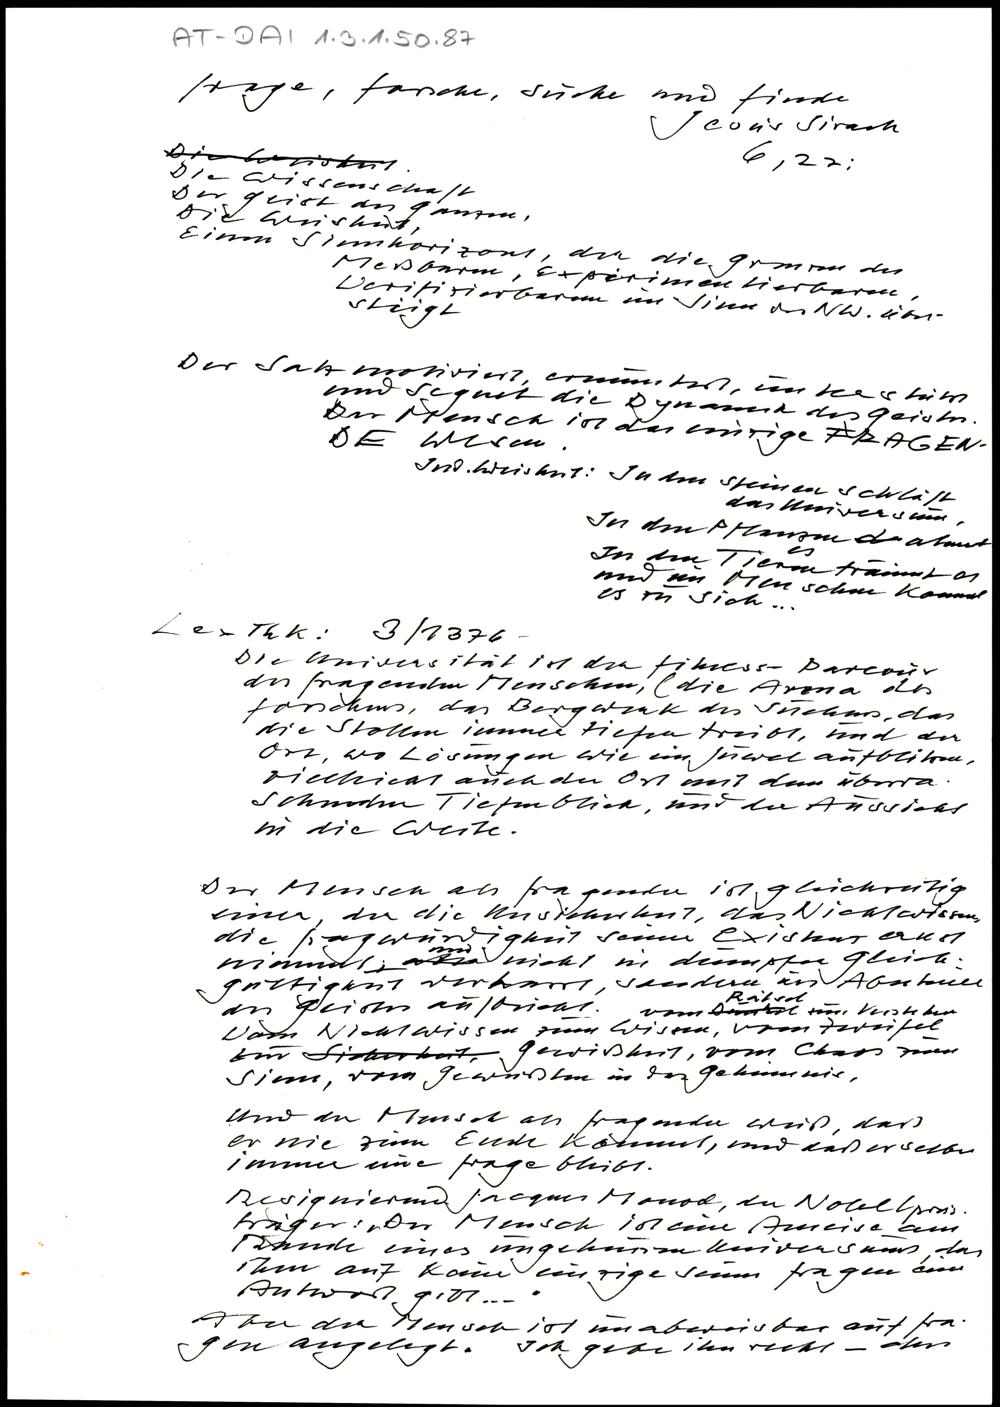 AT-DAI 1.3.1.50.87
frage, forsche, suche und finde
Jesus Sirach
6,27:
Die Weisheit.
Die Wissenschaft
Der Geist des Ganzen,
Die Weisheit,
Einen Sinnhorizont, der die Grenzen des
Meßbaren, Experimentierbaren,
Verifizierbaren im Sinn der NW. über-
steigt
Der Satz motiviert, ermuntert, unterstützt
und segnet die Dynamik des Geistes.
Der Mensch ist das einzige FRAGEN-
DE Wesen.
Ind. Weisheit: In den Steinen schläft
das Universum,
In den Pflanzen atmet
es
In den Tieren träumt es
und im Menschen kommt
es zu sich...
Lex ThK: 3/1376-
Die Universität ist der fitness-Parcour
des fragenden Menschen, (die Arena des
Forschens, das Bergwerk des Suchens, das
die Stollen immer tiefer treibt, und der
Ort, wo Lösungen wie ein Juwel aufblitzen,
vielleicht auch der Ort mit dem überra-
schenden Tiefenblick, und der Aussicht
in die Weite.
Der Mensch als fragender ist gleichzeitig
einer, der die Unsicherheit, das Nichtwissen,
die Fragwürdigkeit seiner Existenz ernst
nimmt, und nicht in dumpfer Gleich-
gültigkeit verharrt, sondern ins Abenteuer
des Geistes aufbricht. vom Rätsel zum Verstehen
Vom Nichtwissen zum Wissen, vom Zweifel
zur Sicherheit, Gewißheit, vom Chaos zum
Sinn, vom Gewußten in das Geheimnis.
Und der Mensch als fragender weiß, daß
er nie zum Ende kommt, und daß er selber
immer eine Frage bleibt.
Resignierend Jacques Monod, der Nobelpreis-
träger: „Der Mensch ist eine Ameise am
Rande eines ungeheuren Universums, das
ihm auf keine einzige seiner Fragen eine
Antwort gibt...."
Aber der Mensch ist unabweisbar auf Fra-
gen angelegt. Ich gebe ihm recht –